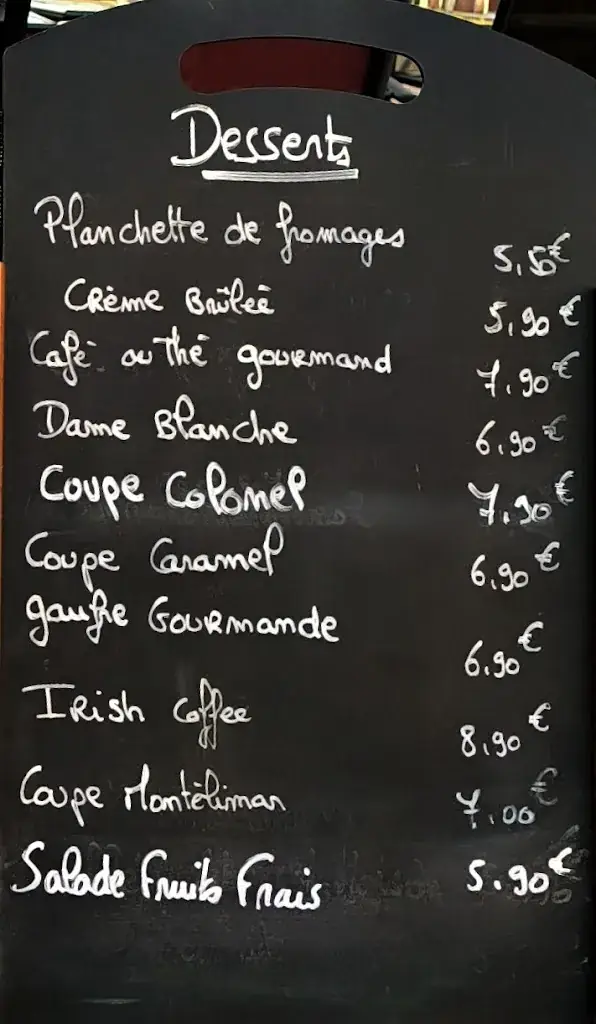 Desserts
Planchette de fromages 5,50€
Crème Brûlée 5,90€
Café ou thé gourmand 7,90€
Dame Blanche 6,90€
Coupe Colonel 7,90€
Coupe Caramel 6,90€
gaufre Gourmande 6,90€
Irish Coffee 8,90€
Coupe Montélimar 7,00€
Salade Fruits Frais 5.90€